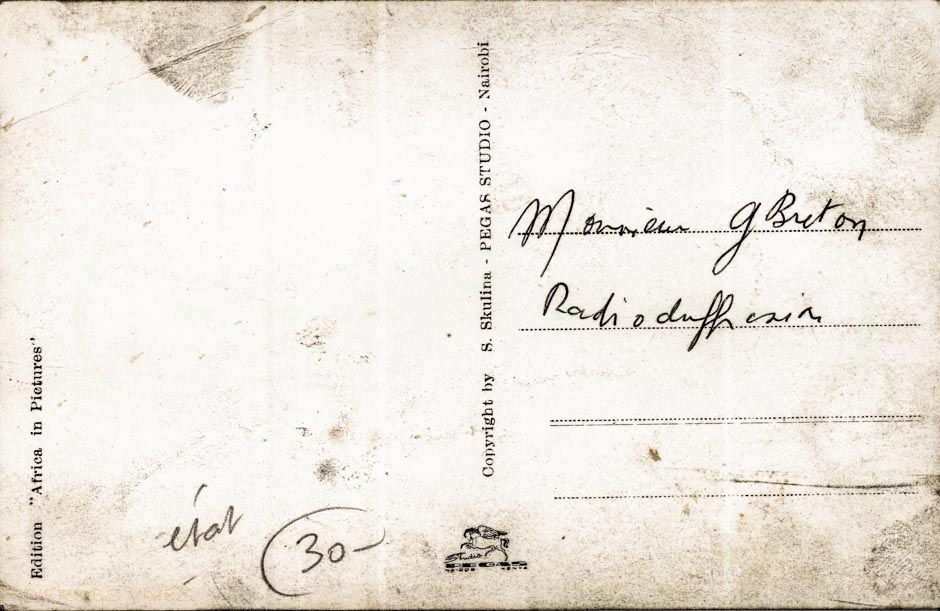 Edition "Africa in Pictures"
Copyright by S. Skulina - PEGAS STUDIO - Nairobi
Monsieur G Breton
Radiodiffusion
état
30-
Studio
PEGAS